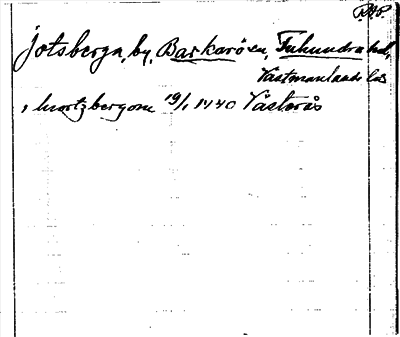 RAP.
Jotsberga, by, Barkarö sn, Tuhundra hd,
Västmanlands län
, hiortzbergom 19/1 1440 Västerås